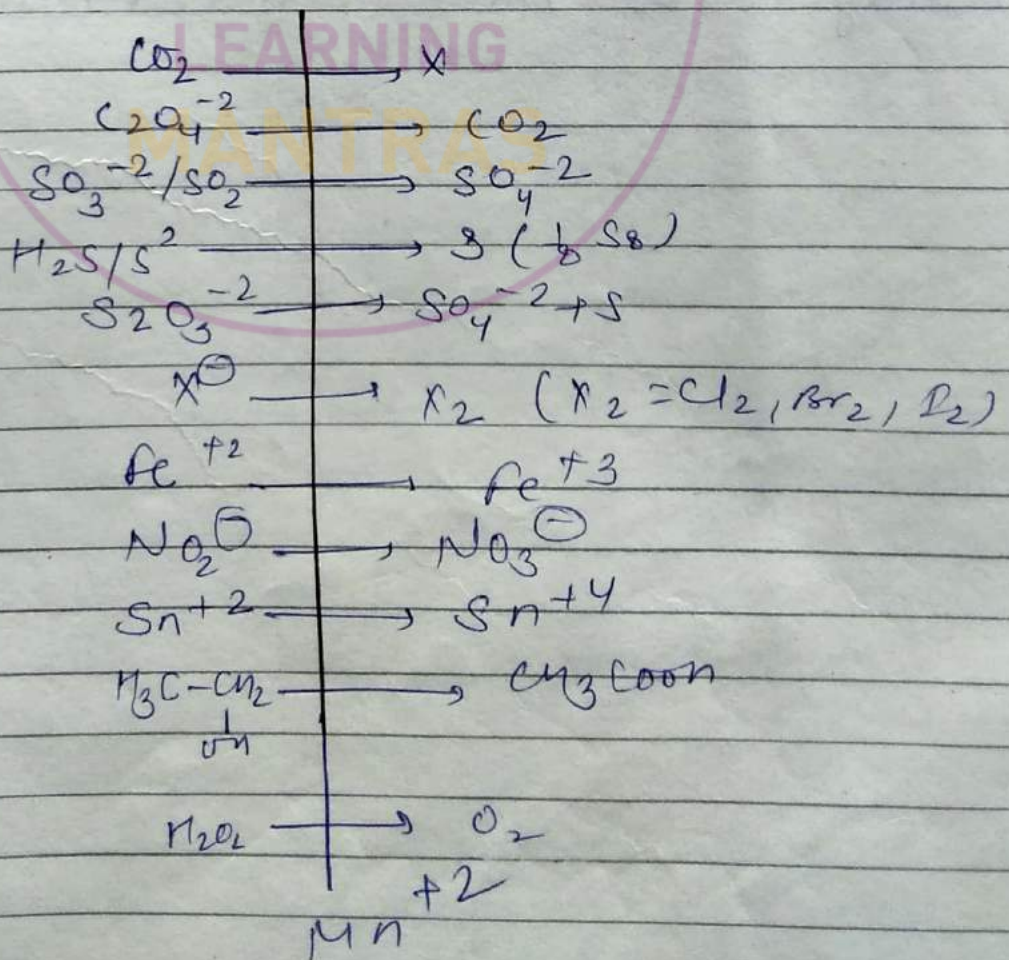 LEARNING
MANTRAS
CO2 → X
C2O4^-2 → CO2
SO3^-2/SO2 → SO4^-2
H2S/S^2 → S (1/8 S8)
S2O3^-2 → SO4^-2 + S
X^⊖ → X2 (X2 = Cl2, Br2, I2)
Fe^+2 → Fe^+3
NO2^⊖ → NO3^⊖
Sn^+2 → Sn^+4
H3C-CH2 → CH3COOH
OH
H2O2 → O2
Mn^+2